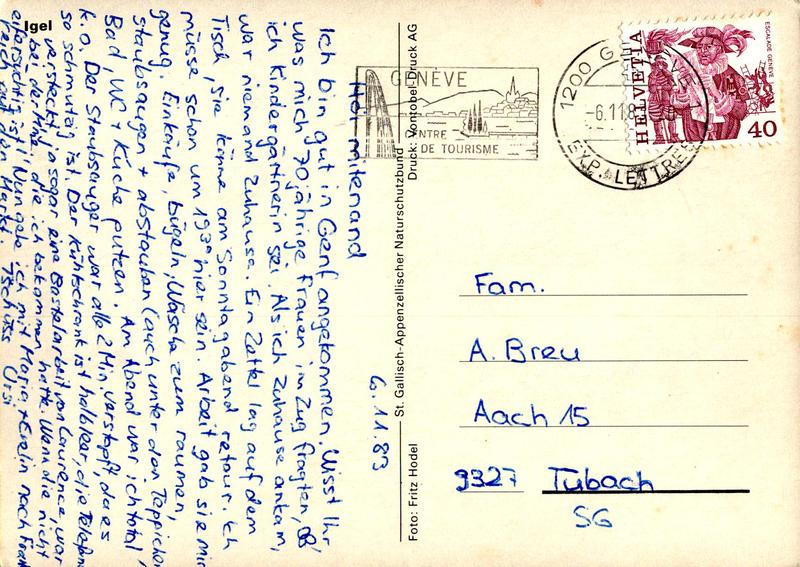 Igel
6.11.83
Hoi mitenand
Ich bin gut in Genf angekommen. Wisst Ihr,
was mich 70jährige Frauen im Zug fragten, ob
ich Kindergärtnerin sei. Als ich Zuhause ankam,
war niemand Zuhause. Ein Zettel lag auf dem
Tisch, sie käme am Sonntagabend retour. Ich
müsse schon um 19³⁰ hier sein. Arbeit gab sie mir
genug. Einkäufe, bügeln, Wäsche zum räumen,
staubsaugen + abstauben (auch unter den Teppichen
Bad, WC + Küche putzen. Am Abend war ich total
k.o. Der Staubsauger war alle 2 Min. verstopft, da es
so schmutzig ist. Der Kühlschrank ist halbleer, die Telefon
versteckt, ja sogar eine Bastelarbeit von Laurence, war
bei der Mine, die ich bekommen hatte. Wenn die nicht
eifersüchtig ist! Nun gehe ich mit Maria + Evelin nach Frank
reich auf den Markt. Tschüss Ursi
St. Gallisch-Appenzellischer Naturschutzbund
Foto: Fritz Hodel
Druck: Vontobel-Druck AG
GENÈVE
CENTRE
DE TOURISME
1200 GENÈVE 1
-6.11.8
EXP. LETTRES
HELVETIA
ESCALADE GENÈVE
40
Fam.
A. Breu
Aach 15
9327 Tubach
SG